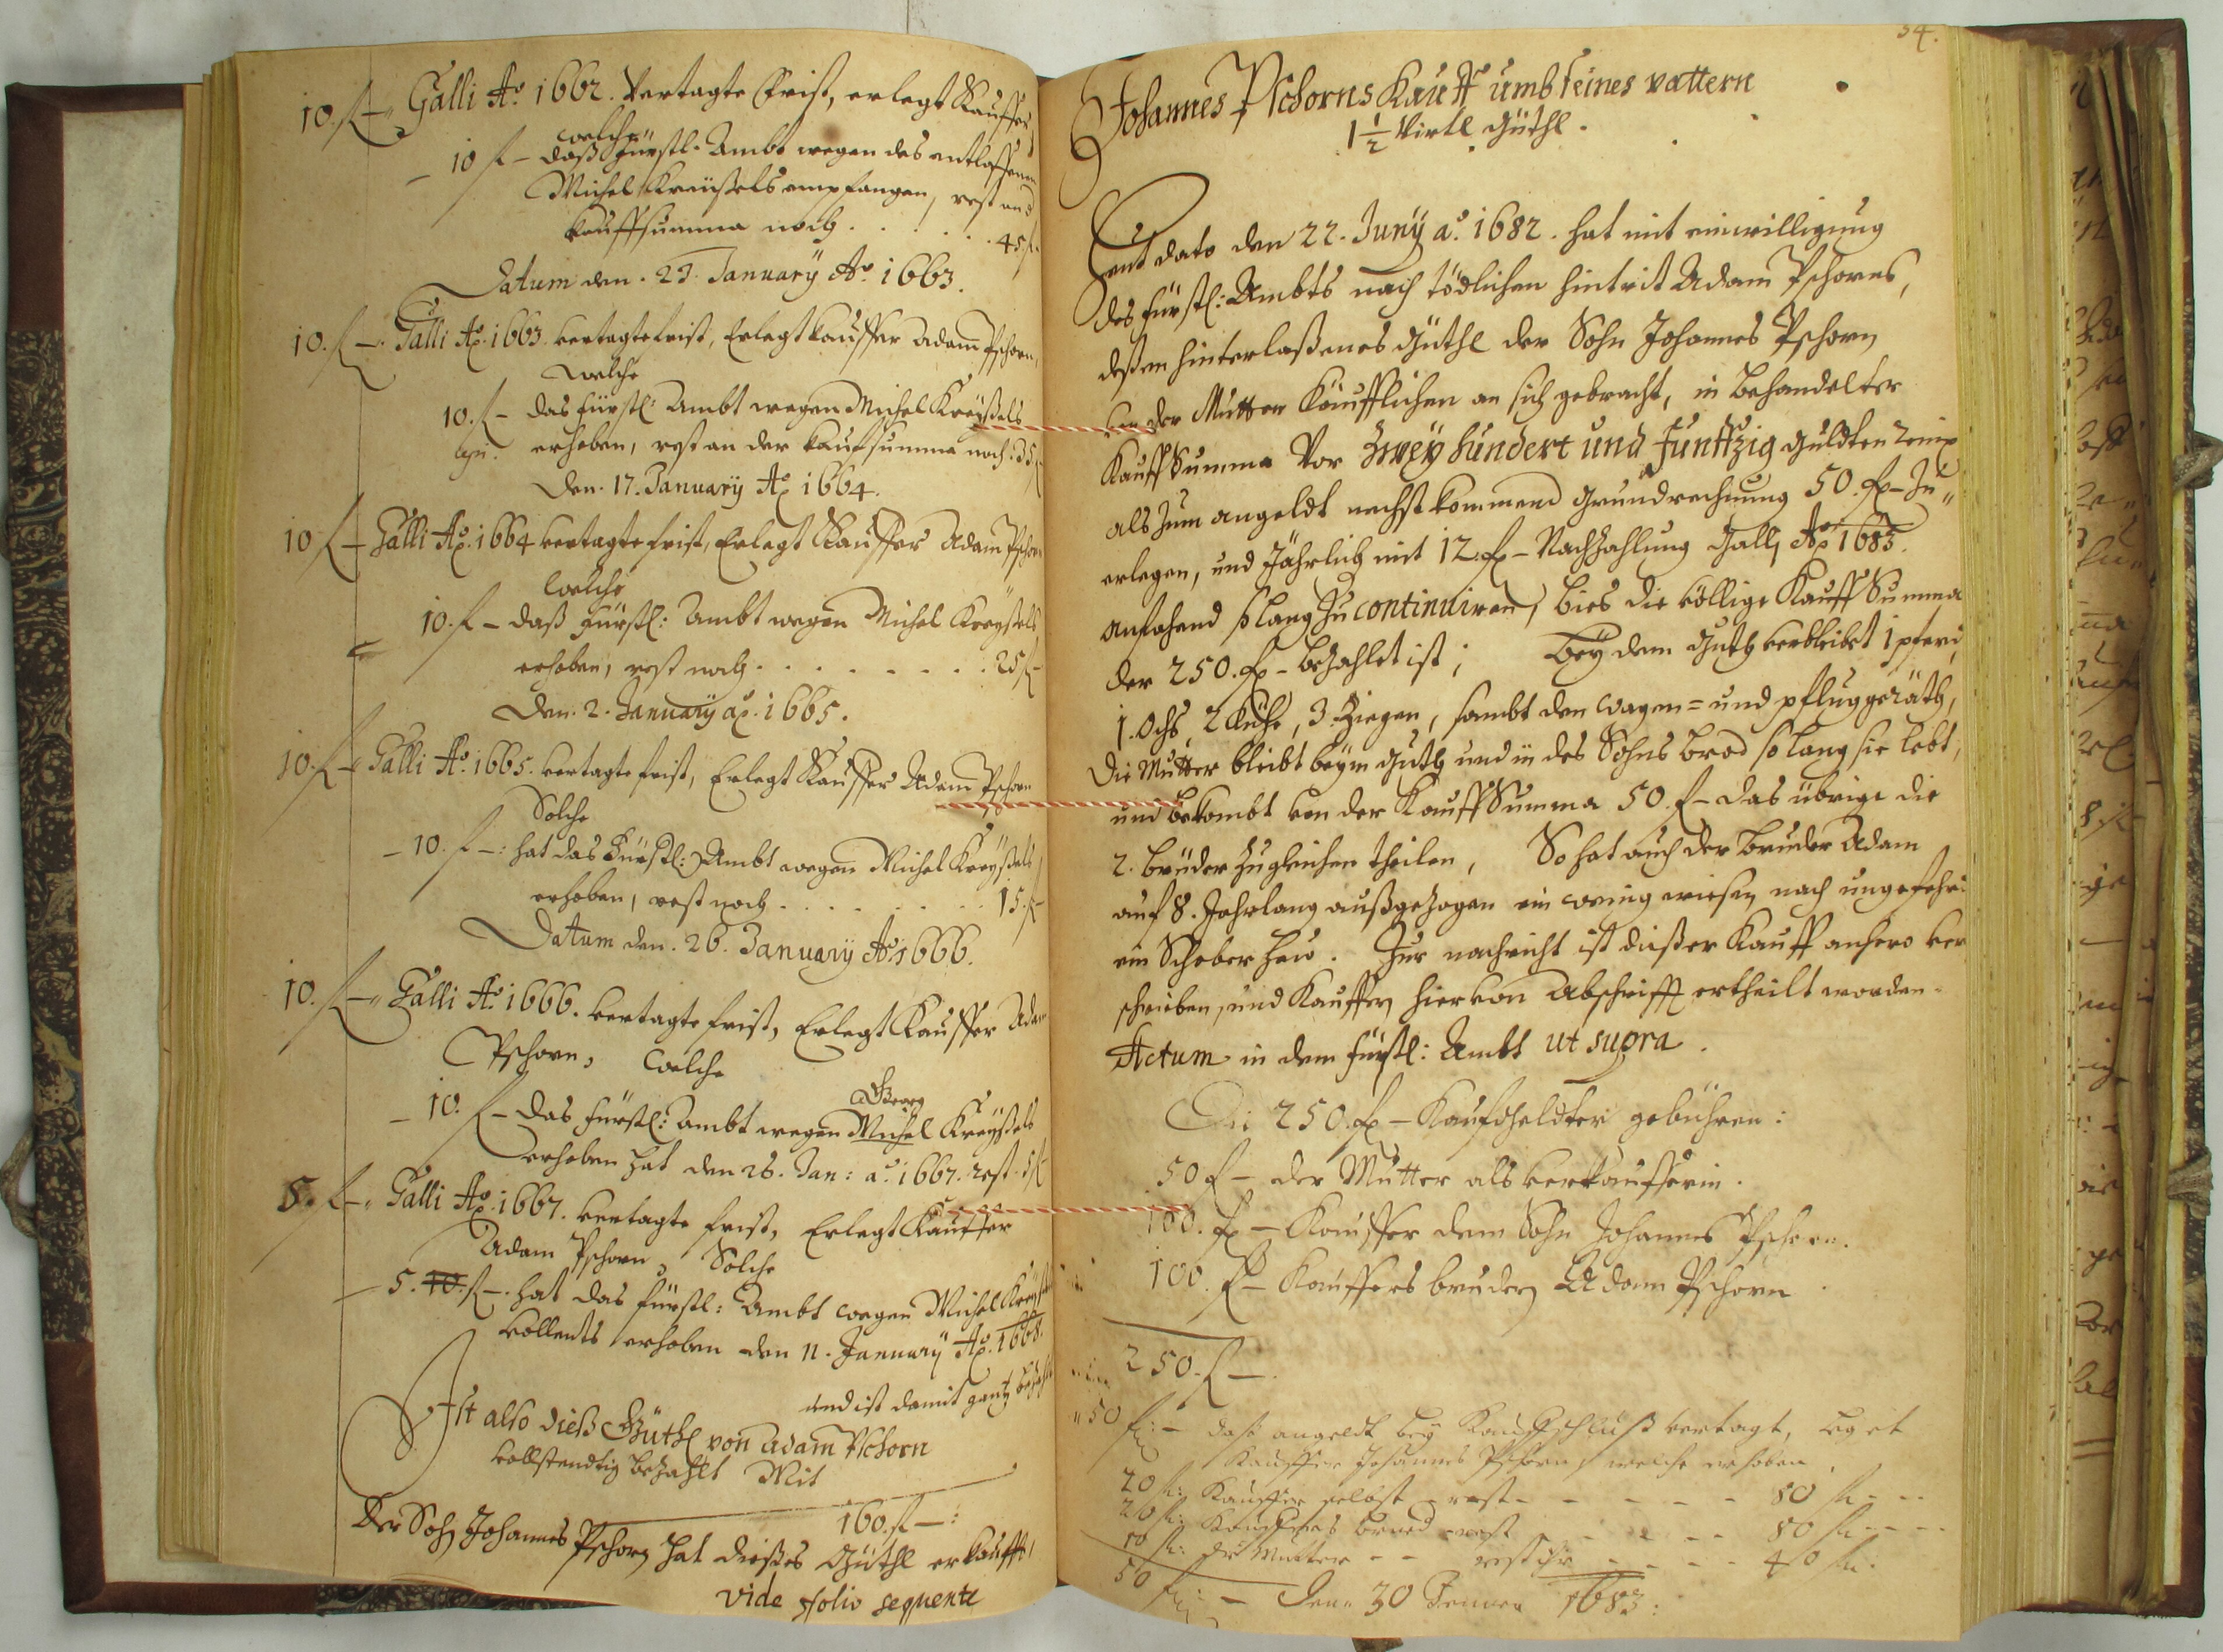 10. fl – Galli Ao. 1662. Vertagte Frist, erlegt Kauffer,
welche
– 10 fl – daß Fürstl. Ambt wegen des entloffenen
Michel Kreüßels empfangen, rest and
kauffsumma noch . . . . . . 45 fl.
Datum den . 23. January Ao. 1663.
10. fl – Galli Ao. 1663. vertagte frist, Erlegt kauffer Adam Pschorn,
welche
10. fl – das fürstl: Ambt wegen Michel Kreyßels
erhoben, rest an der kaufsumma noch . 35 fl
Den. 17. January Ao 1664.
10 fl – Galli Ao. 1664 vertagte frist, Erlegt Kauffer Adam Pschorn
welche
10. fl – daß Fürstl: Ambt wegen Michel Kreyßels
erhoben, rest noch . . . . . . . . 25 fl –
Den. 2. January ao. 1665.
10. fl – Galli Ao. 1665. vertagte frist, Erlegt Kauffer Adam Pschorn
Solche
– 10. fl –: hat das Fürstl: Ambt wegen Michel Kreyßels
erhoben, rest noch . . . . . . . 15. fl –
Datum den. 26. January Ao. 1666.
10. fl – Galli Ao. 1666. vertagte frist, Erlegt Kauffer Adam
Pschorn, welche
Georg
– 10. fl – das fürstl: ambt wegen Michel Kreyßels
erhoben hat den 26. Jan: ao. 1667. rest . 5 fl
5. fl – Galli Ao. 1667. vertagte frist, Erlegt Kauffer
Adam Pschorn, Solche
– 5. 10. fl –. hat das fürstl: Ambt wegen Michel Kreyßels
vollents erhoben den 11. January Ao. 1668.
und ist damit gantz bezahlt
Ist also dieß Güthl von Adam Pschorn
vollstendtig bezahlt Mit
160. fl –:
Der Sohn Johannes Pschorn hat dießes Güthl erkaufft,
vide folio sequente
54.
Johannes Pschorns Kauff umb seines vattern
1 1/2 Virtl Güthl.
Sent dato den 22. Juny ao. 1682. hat mit einwilligung
des Fürstl: Ambts nach tödlichen hintrit Adam Pschorns,
deßen hinterlaßenes Güthl der Sohn Johannes Pschorn
von der Mutter käufflichen an sich gebracht, in behandelter
Kauff Summa Vor Zwey hundert und Funffzig Gulden
als zum angeldt nechst kommend Grundrechnung 50. fl – Zu
erlegen, und Jährlich mit 12. fl – Nachzahlung Galli Ao 1683.
anfahend so lang zu continuiren, bies die völlige Kauff Summa
der 250. fl – bezahlet ist; Bey dem Guth verbleibet 1 pferd,
1. Ochs, 2 Kühe, 3. Ziegen, sambt den wagen= und pfluggeräth,
Die Mutter bleibt beym Guth und in des Sohns brod so lang sie lebt,
und bekombt von der Kauff Summa 50. fl – das übrige die
2. brüder zu gleichen theilen, So hat auch der bruder Adam
auf 8. Jahrlang außgezogen ein wenig wiesen nach ungefehr
ein Schober Heu. Zur nachricht ist dießer Kauff anhero ver
schrieben, und Kauffern hiervon Abschrifft ertheilt worden.
Actum in dem fürstl: Ambt ut supra.
Die 250. fl – Kaufgeldter gebühren:
50 fl – der Mutter als verkaufferin.
100. fl – Kauffer dem Sohn Johannes Pschorn.
100. fl – Kauffers bruder Adam Pschorn
250. fl –.
50 fl: – daß angeldt bey Kauffschluß vertagt, leget
Kauffer Johannes Pschorn, welche erhoben
20 fl: Kauffer selbst – rest – – – – – 80 fl: – –
20 fl: Kauffers brud – rest – – – – 80 fl: – – –
10 fl: die Mutter – – rest ihr – – – – 40 fl:
50 fl: – Den 30 Jenner 1683: